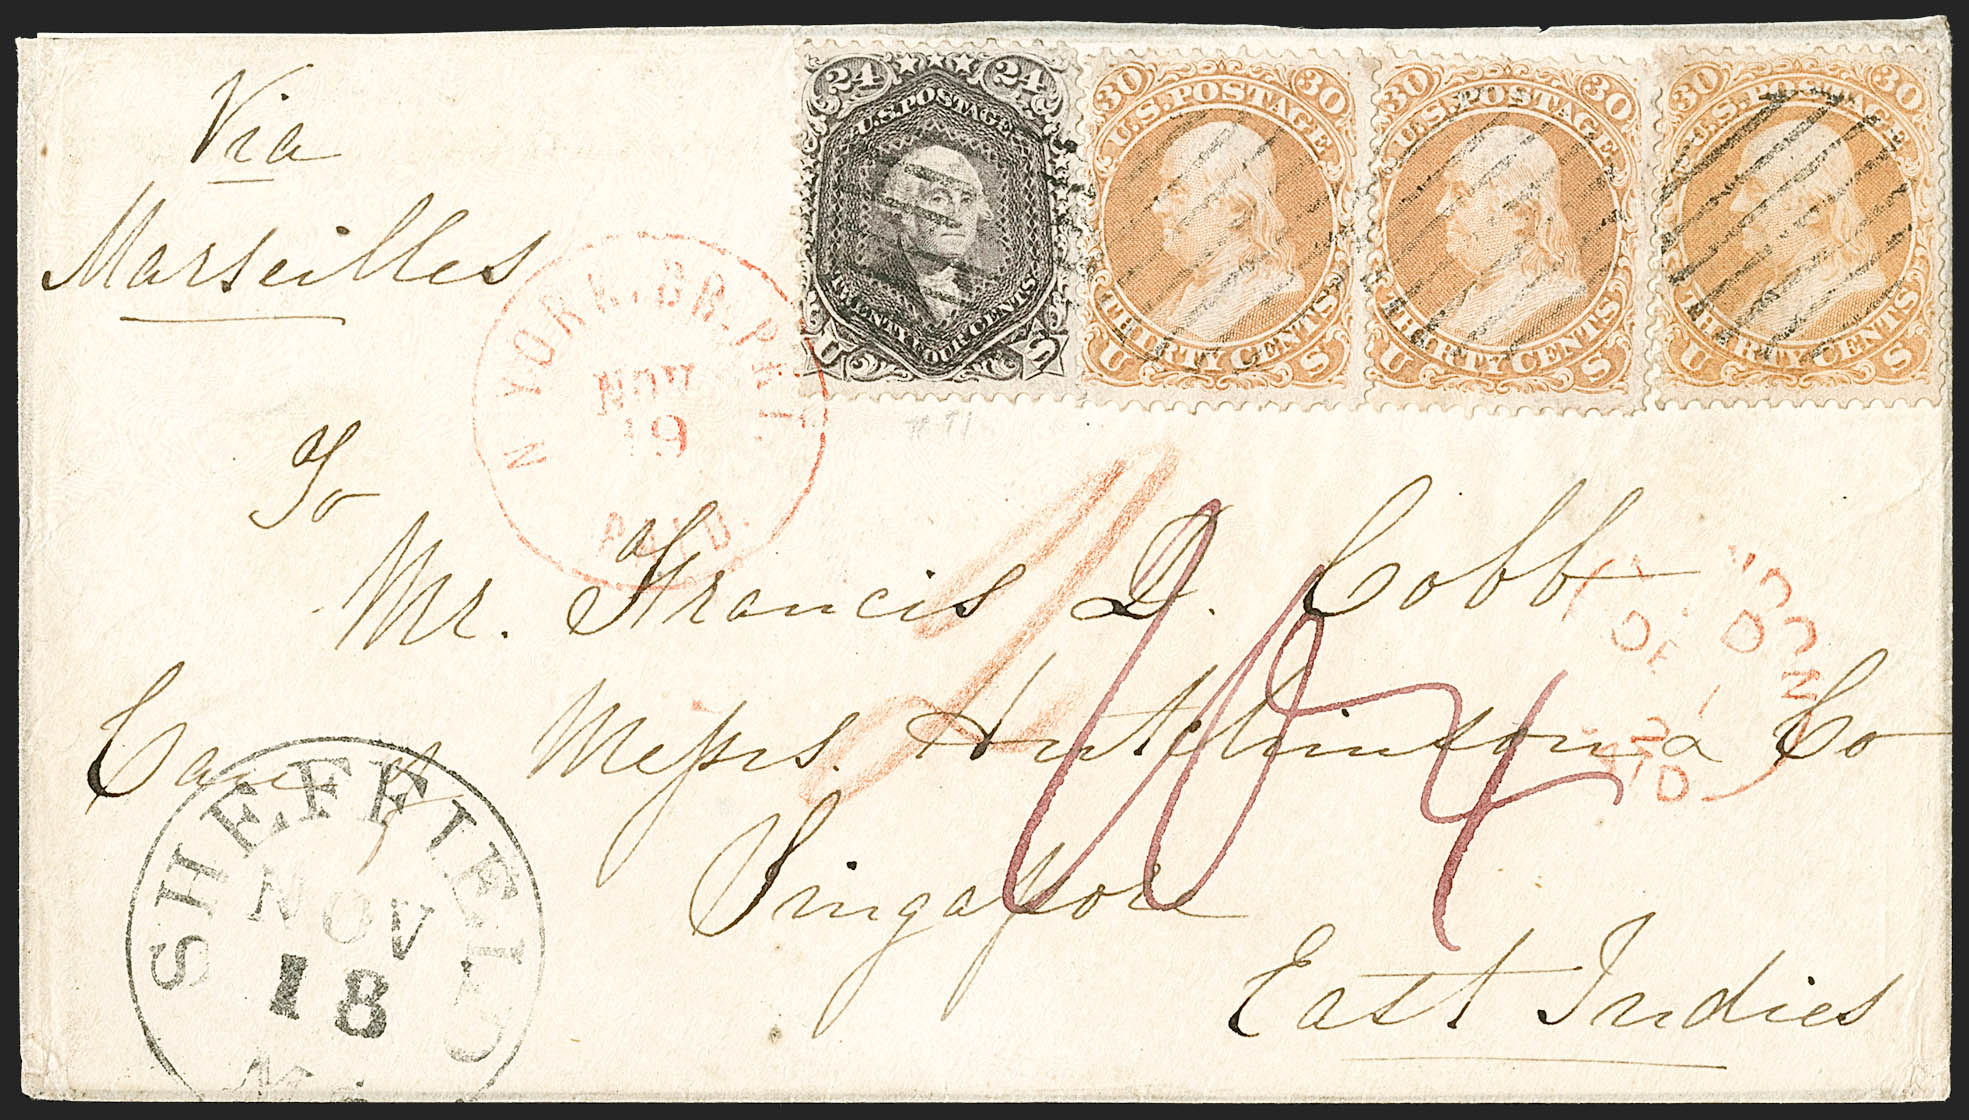 Via
Marseilles
24 24
U.S. POSTAGE
TWENTY FOUR CENTS
U S
30 30
U.S. POSTAGE
THIRTY CENTS
U S
30 30
U.S. POSTAGE
THIRTY CENTS
U S
30 30
U.S. POSTAGE
THIRTY CENTS
U S
N YORK. BR. PKT.
NOV
19
PAID.
#71
To
Mr. Francis D. Cobb
Care of Messrs. Hutchinson & Co
Singapore
East Indies
104
LONDON
DE
PAID
SHEFFIELD
NOV
18